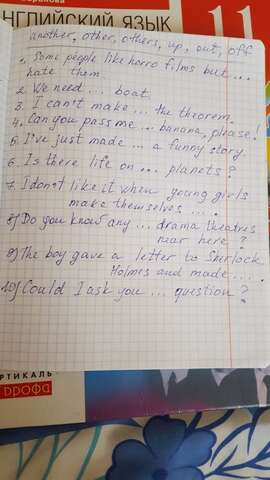 АНГЛИЙСКИЙ ЯЗЫК
11
another, other, others, up, out, off
1. Some people like horro films but ...
hate them.
2. We need ... boat.
3. I can't make ... the theorem.
4. Can you pass me ... banana, please!
5. I've just made ... a funny story.
6. Is there life on ... planets?
7. I don't like it when young girls
make themselves ... .
8) Do you know any ... drama theatres
near here?
9) The boy gave a letter to Sherlock
Holmes and made ... .
10) Could I ask you ... question?
ЕРТИКАЛЬ
дрофа